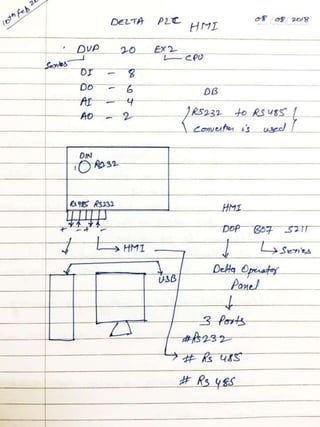 10th Feb 20
DELTA PLC HMI 08 08 2018
DVP 20 EX2
Series CPU
DI - 8
DO - 6
AI - 4
AO - 2
DB
RS232 to RS485
converter is used
DIN
RS232
RS485 RS232
+ - + -
HMI
USB
HMI
DOP B07 S211
Series
Delta Operator
Panel
3 Ports
# RS232
# RS 485
# RS 485